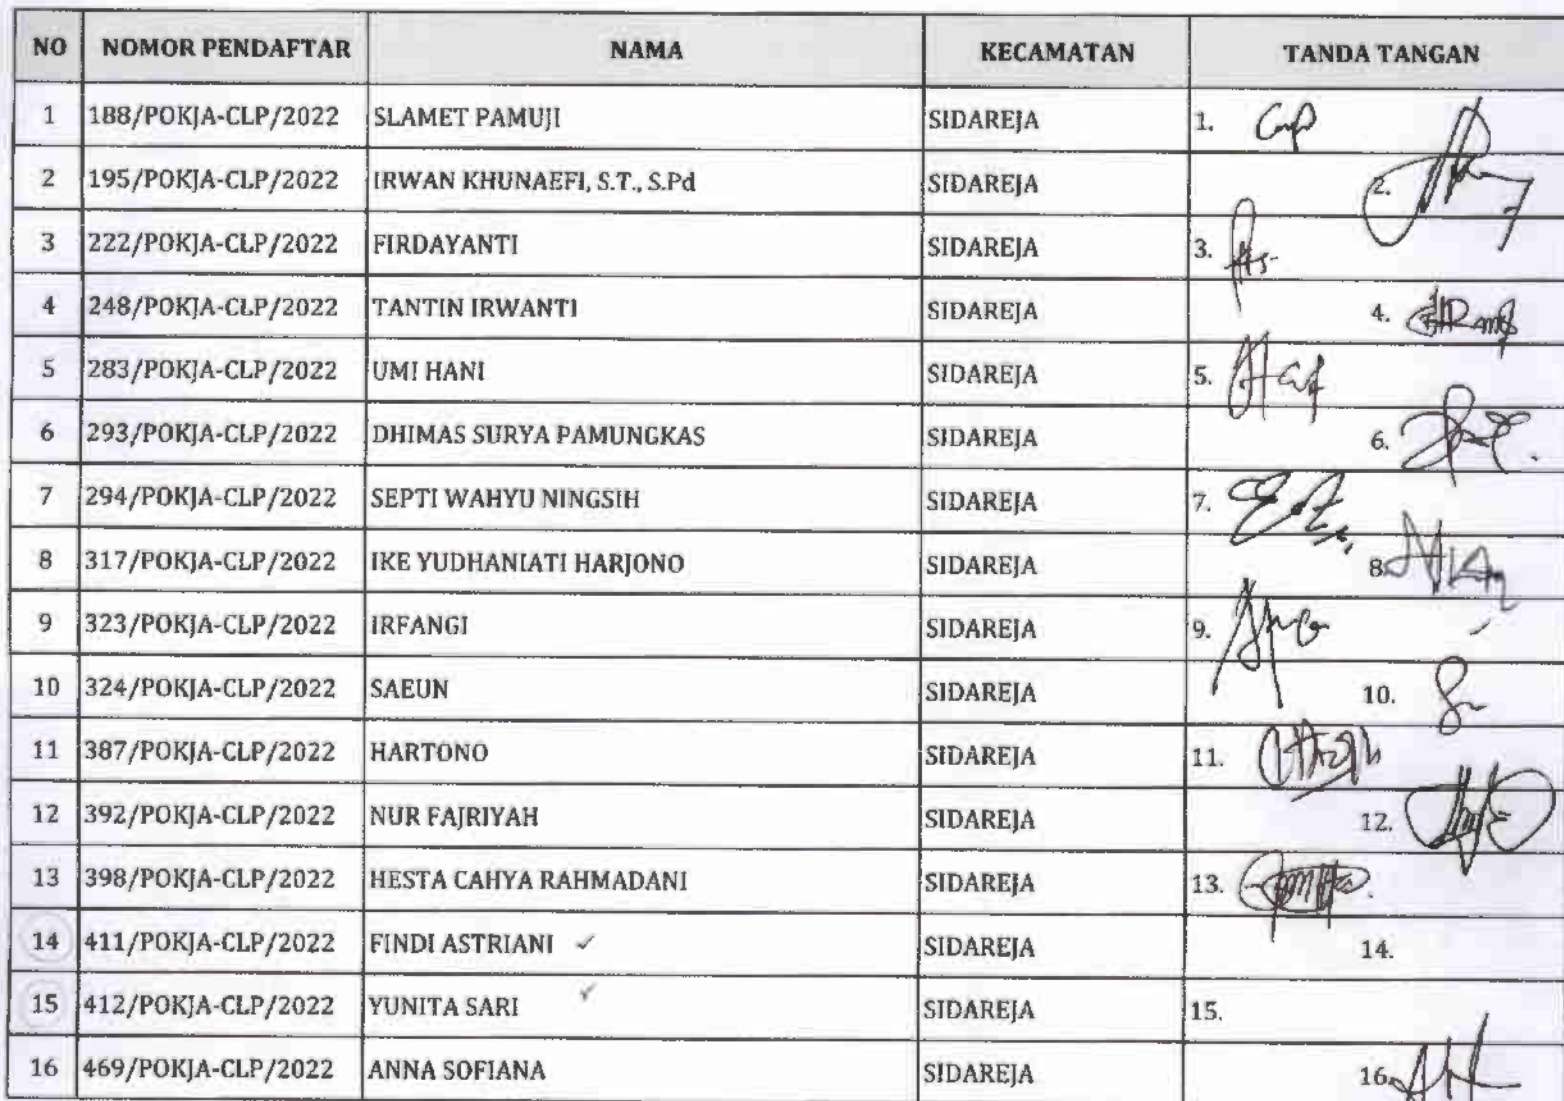 NO NOMOR PENDAFTAR NAMA KECAMATAN TANDA TANGAN
1 188/POKJA-CLP/2022 SLAMET PAMUJI SIDAREJA 1.
2 195/POKJA-CLP/2022 IRWAN KHUNAEFI, S.T., S.Pd SIDAREJA 2.
3 222/POKJA-CLP/2022 FIRDAYANTI SIDAREJA 3.
4 248/POKJA-CLP/2022 TANTIN IRWANTI SIDAREJA 4.
5 283/POKJA-CLP/2022 UMI HANI SIDAREJA 5.
6 293/POKJA-CLP/2022 DHIMAS SURYA PAMUNGKAS SIDAREJA 6.
7 294/POKJA-CLP/2022 SEPTI WAHYU NINGSIH SIDAREJA 7.
8 317/POKJA-CLP/2022 IKE YUDHANIATI HARJONO SIDAREJA 8.
9 323/POKJA-CLP/2022 IRFANGI SIDAREJA 9.
10 324/POKJA-CLP/2022 SAEUN SIDAREJA 10.
11 387/POKJA-CLP/2022 HARTONO SIDAREJA 11.
12 392/POKJA-CLP/2022 NUR FAJRIYAH SIDAREJA 12.
13 398/POKJA-CLP/2022 HESTA CAHYA RAHMADANI SIDAREJA 13.
14 411/POKJA-CLP/2022 FINDI ASTRIANI ✓ SIDAREJA 14.
15 412/POKJA-CLP/2022 YUNITA SARI ✓ SIDAREJA 15.
16 469/POKJA-CLP/2022 ANNA SOFIANA SIDAREJA 16.